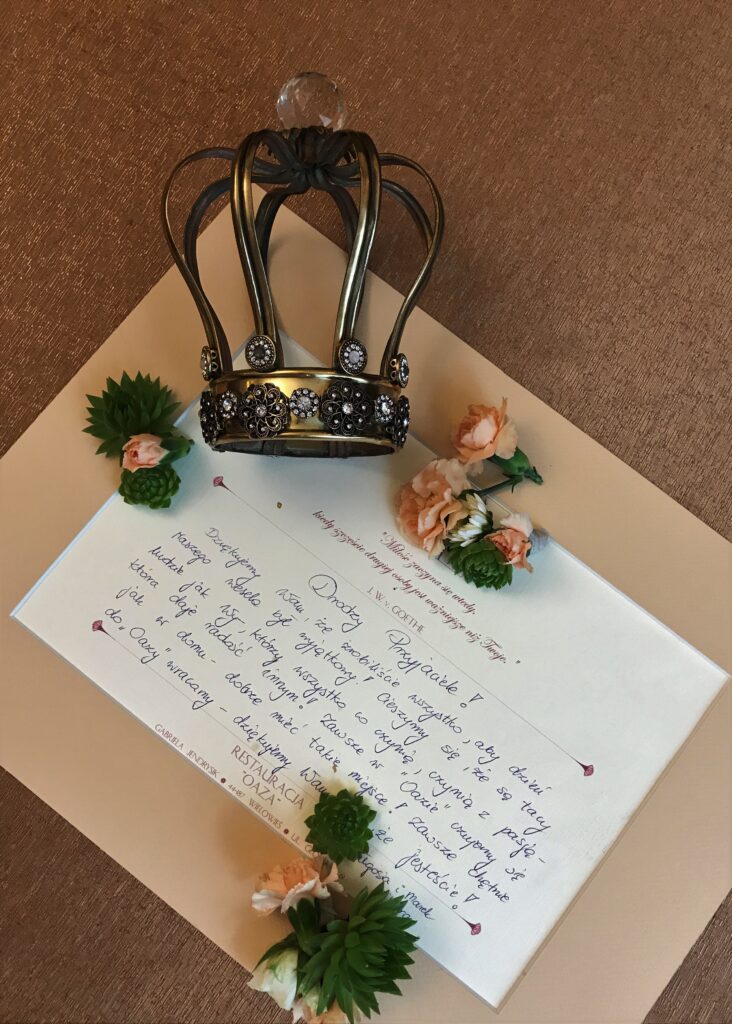 "Miłość zaczyna się wtedy,
kiedy szczęście drugiej osoby jest ważniejsze niż Twoje."
J. W. v. GOETHE
Drodzy Przyjaciele!
Dziękujemy Wam, że zrobiliście wszystko, aby dzień
naszego wesela był wyjątkowy! Cieszymy się, że są tacy
ludzie jak wy, którzy wszystko co czynią, czynią z pasją -
która daje radość innym! Zawsze w "Oazie" czujemy się
jak w domu - dobrze mieć takie miejsce! Zawsze chętnie
do "Oazy" wracamy - dziękujemy Wam że jesteście!
i Marek
RESTAURACJA
"OAZA"
GABRIELA JENDRYSIK • 44-187 WIELOWIEŚ • UL.